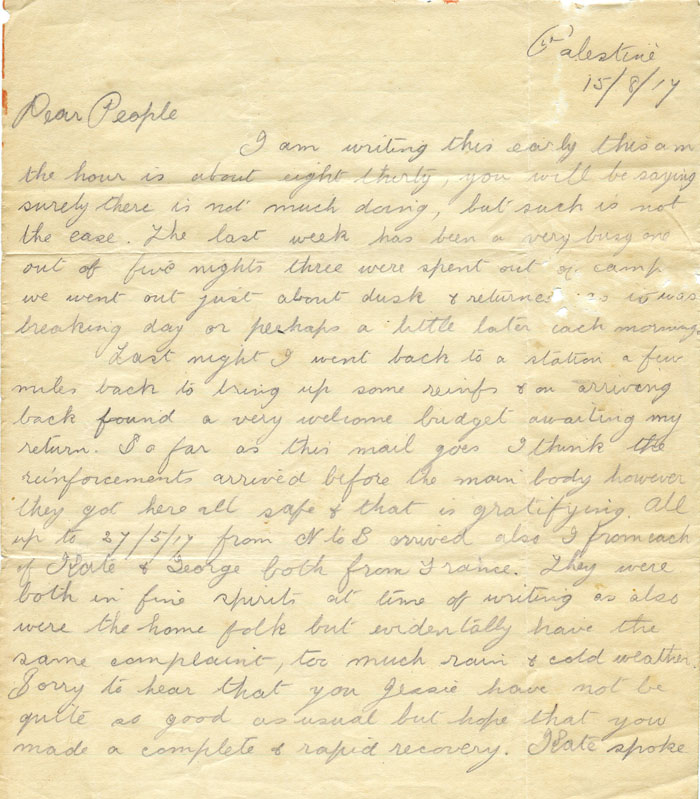 Palestine
15/8/17
Dear People
I am writing this early this am
the hour is about eight thirty, you will be saying
surely there is not much doing, but such is not
the case. The last week has been a very busy one
out of five nights three were spent out of camp
we went out just about dusk & returned as it was
breaking day or perhaps a little later each morning.
Last night I went back to a station a few
miles back to bring up some reinfs & on arriving
back found a very welcome budget awaiting my
return. So far as this mail goes I think the
reinforcements arrived before the main body however
they got here all safe & that is gratifying. All
up to 27/5/17 from N to S arrived also 1 from each
of Kate & George both from France. They were
both in fine spirits at time of writing as also
were the home folk but evidentally have the
same complaint, too much rain & cold weather.
Sorry to hear that you Jessie have not be
quite so good as usual but hope that you
made a complete & rapid recovery. Kate spoke